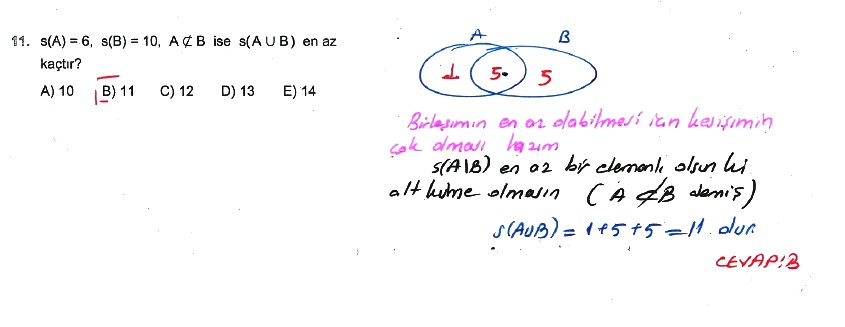 11. s(A) = 6, s(B) = 10, A ⊄ B ise s(A ∪ B) en az
kaçtır?
A) 10 B) 11 C) 12 D) 13 E) 14
A B
1 5 5
Birleşimin en az olabilmesi için kesişimin
çok olması lazım
s(A\B) en az bir elemanlı olsun ki
alt küme olmasın ( A ⊄ B demiş)
s(A∪B) = 1+5+5 = 11 olur.
CEVAP:B